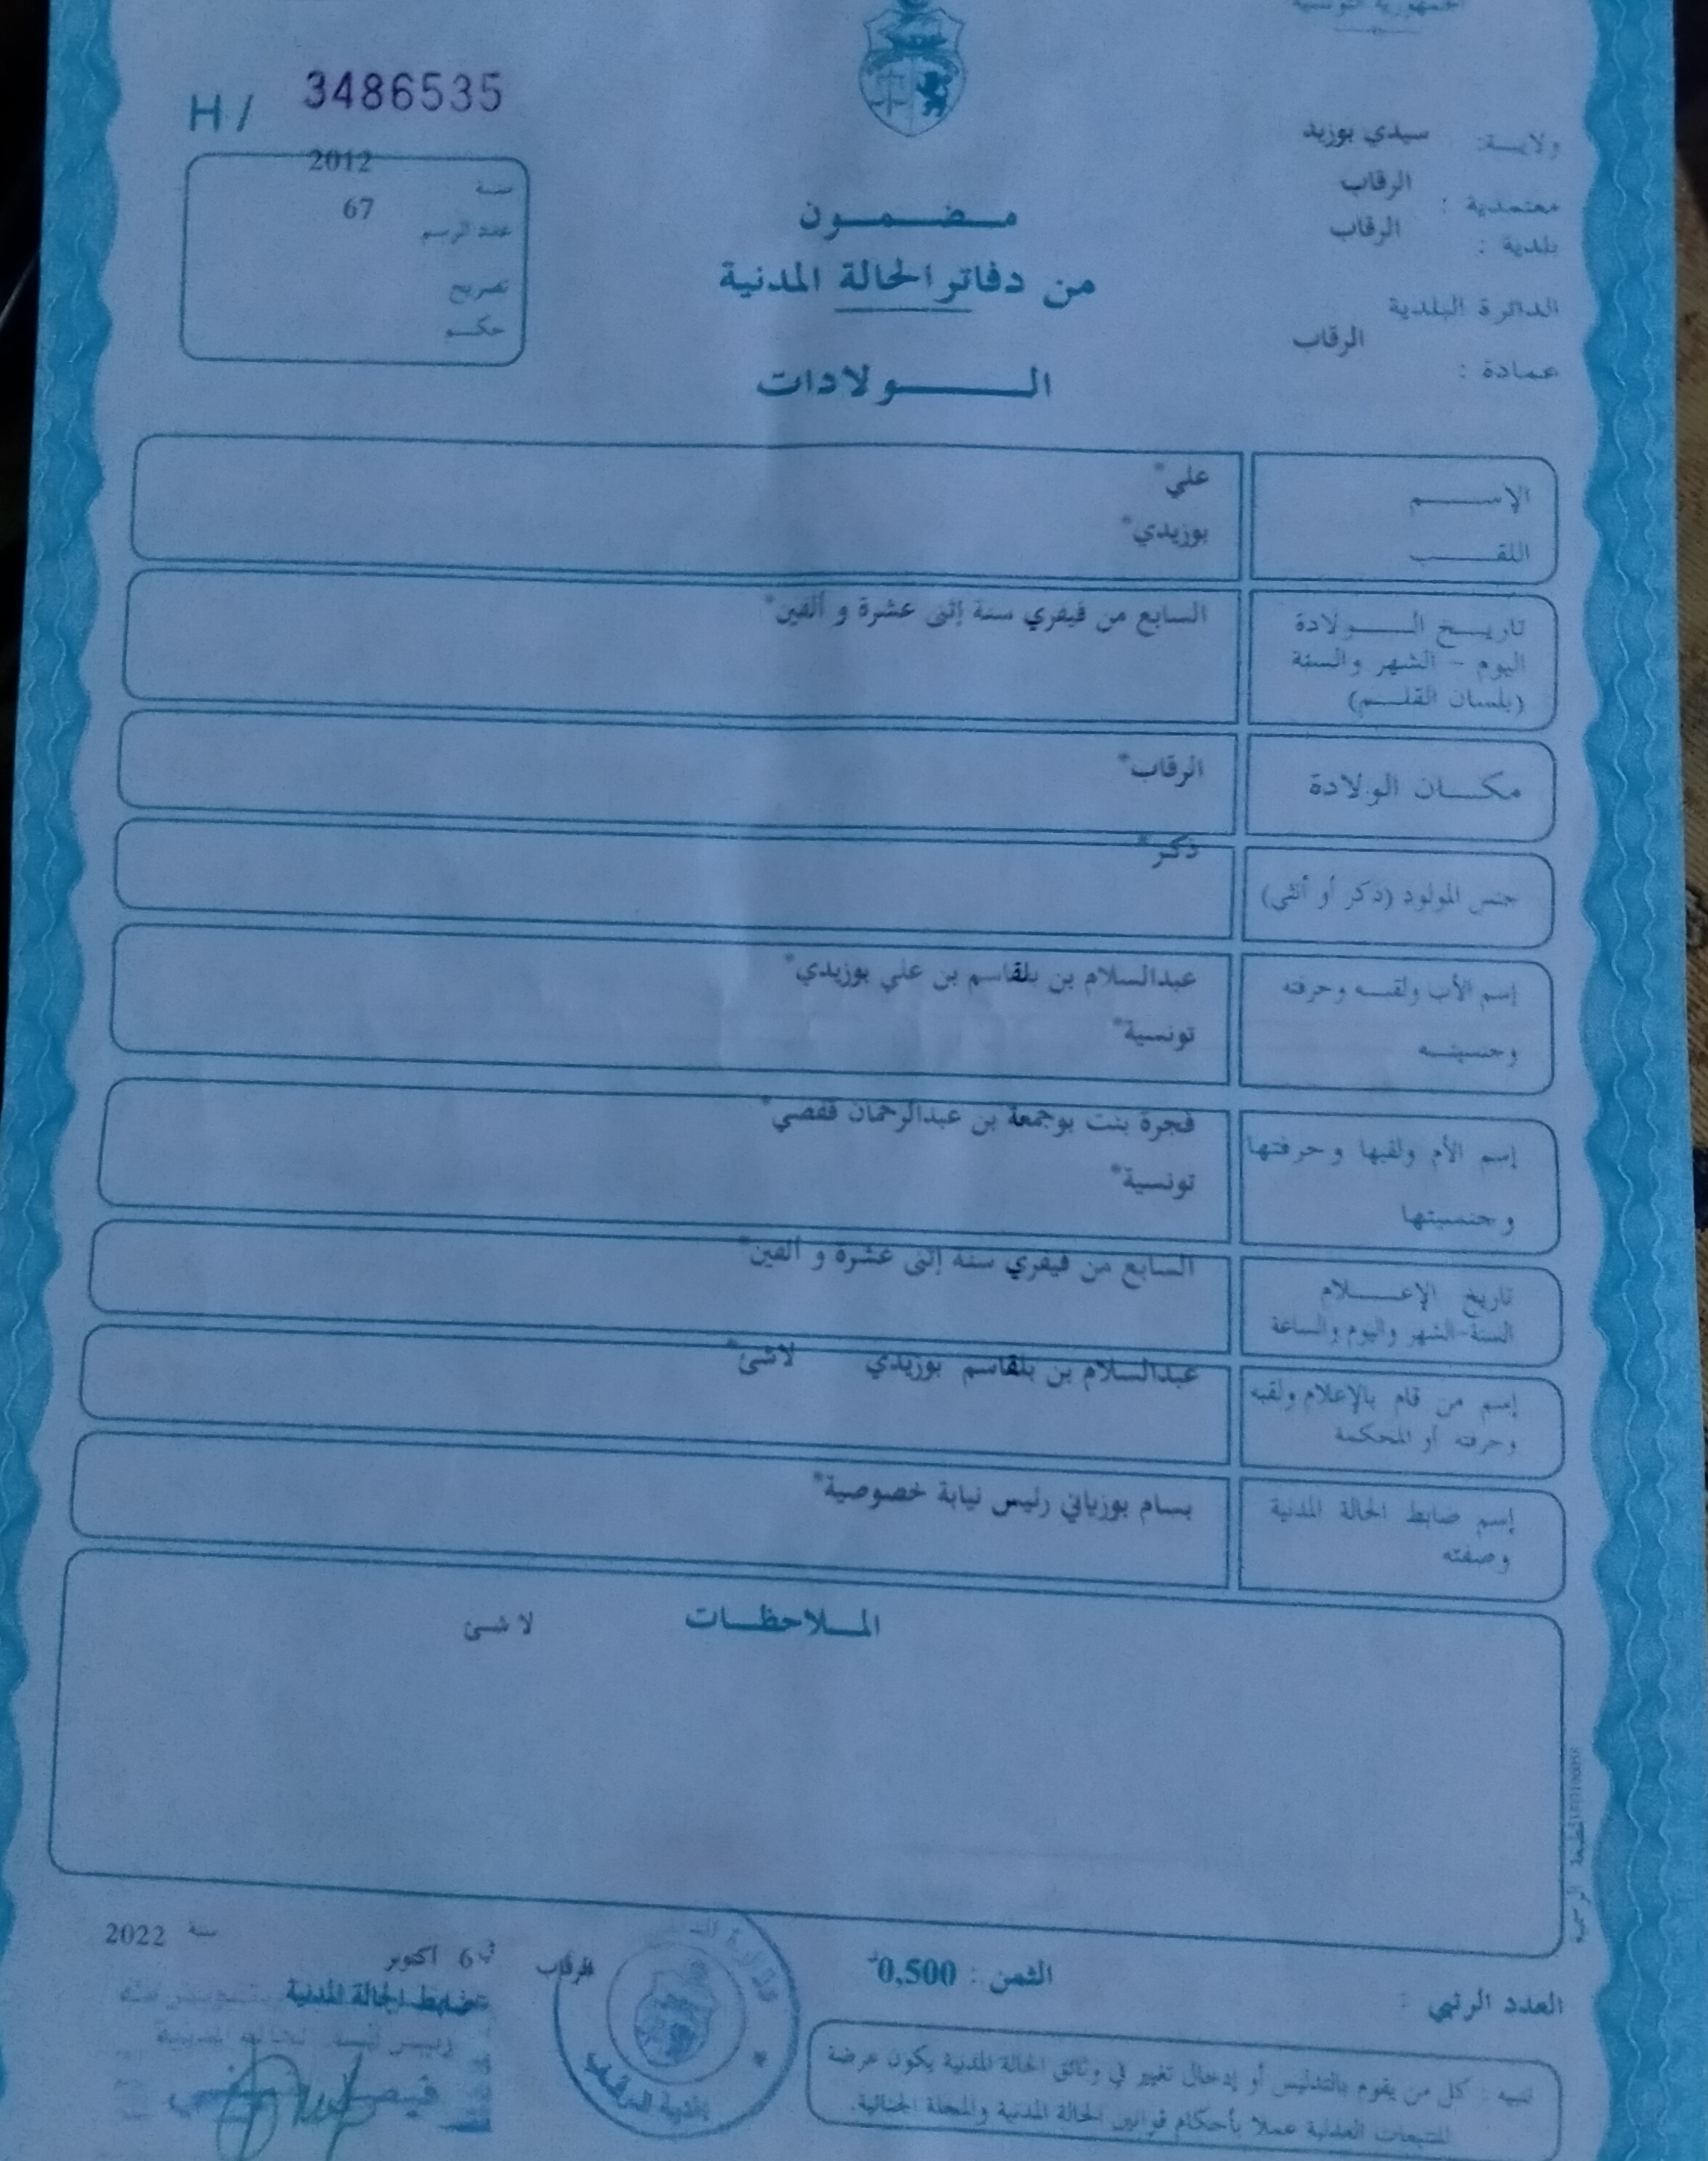 الجمهورية التونسية
H / 3486535
ولايـة: سيدي بوزيد
معتمدية : الرقاب
بلدية : الرقاب
الدائرة البلدية
عمـادة : الرقاب
سنة 2012
عدد الرسم 67
تصريح
حكـم
مـضـمـون
من دفاتر الحالة المدنية
الـولادات
الإسـم علي*
اللقـب بوزيدي*
تاريـخ الـولادة السابع من فيفري سنة إثنى عشرة و ألفين*
اليوم - الشهر والسنة
(بلسان القلـم)
مكـان الولادة الرقاب*
جنس المولود (ذكر أو أنثى) ذكر*
إسم الأب ولقبـه وحرفته عبدالسلام بن بلقاسم بن علي بوزيدي*
وجنسيتـه تونسية*
إسم الأم ولقبها وحرفتها فجرة بنت بوجمعة بن عبدالرحمان قفصي*
وجنسيتها تونسية*
تاريخ الإعـلام السابع من فيفري سنة إثنى عشرة و ألفين*
السنة-الشهر واليوم والساعة
إسم من قام بالإعلام ولقبه عبدالسلام بن بلقاسم بوزيدي لاشئ*
وحرفته أو المحكمة
إسم ضابط الحالة المدنية بسام بوزياني رئيس نيابة خصوصية*
وصفته
المـلاحظـات لا شئ
الرقاب في 6 اكتوبر سنة 2022
ضابط الحالة المدنية
الثمن : 0,500د
العدد الرتبي :
تنبيه : كل من يقوم بالتدليس أو إدخال تغيير في وثائق الحالة المدنية يكون عرضة
للتتبعات العدلية عملا بأحكام قوانين الحالة المدنية والمجلة الجنائية.